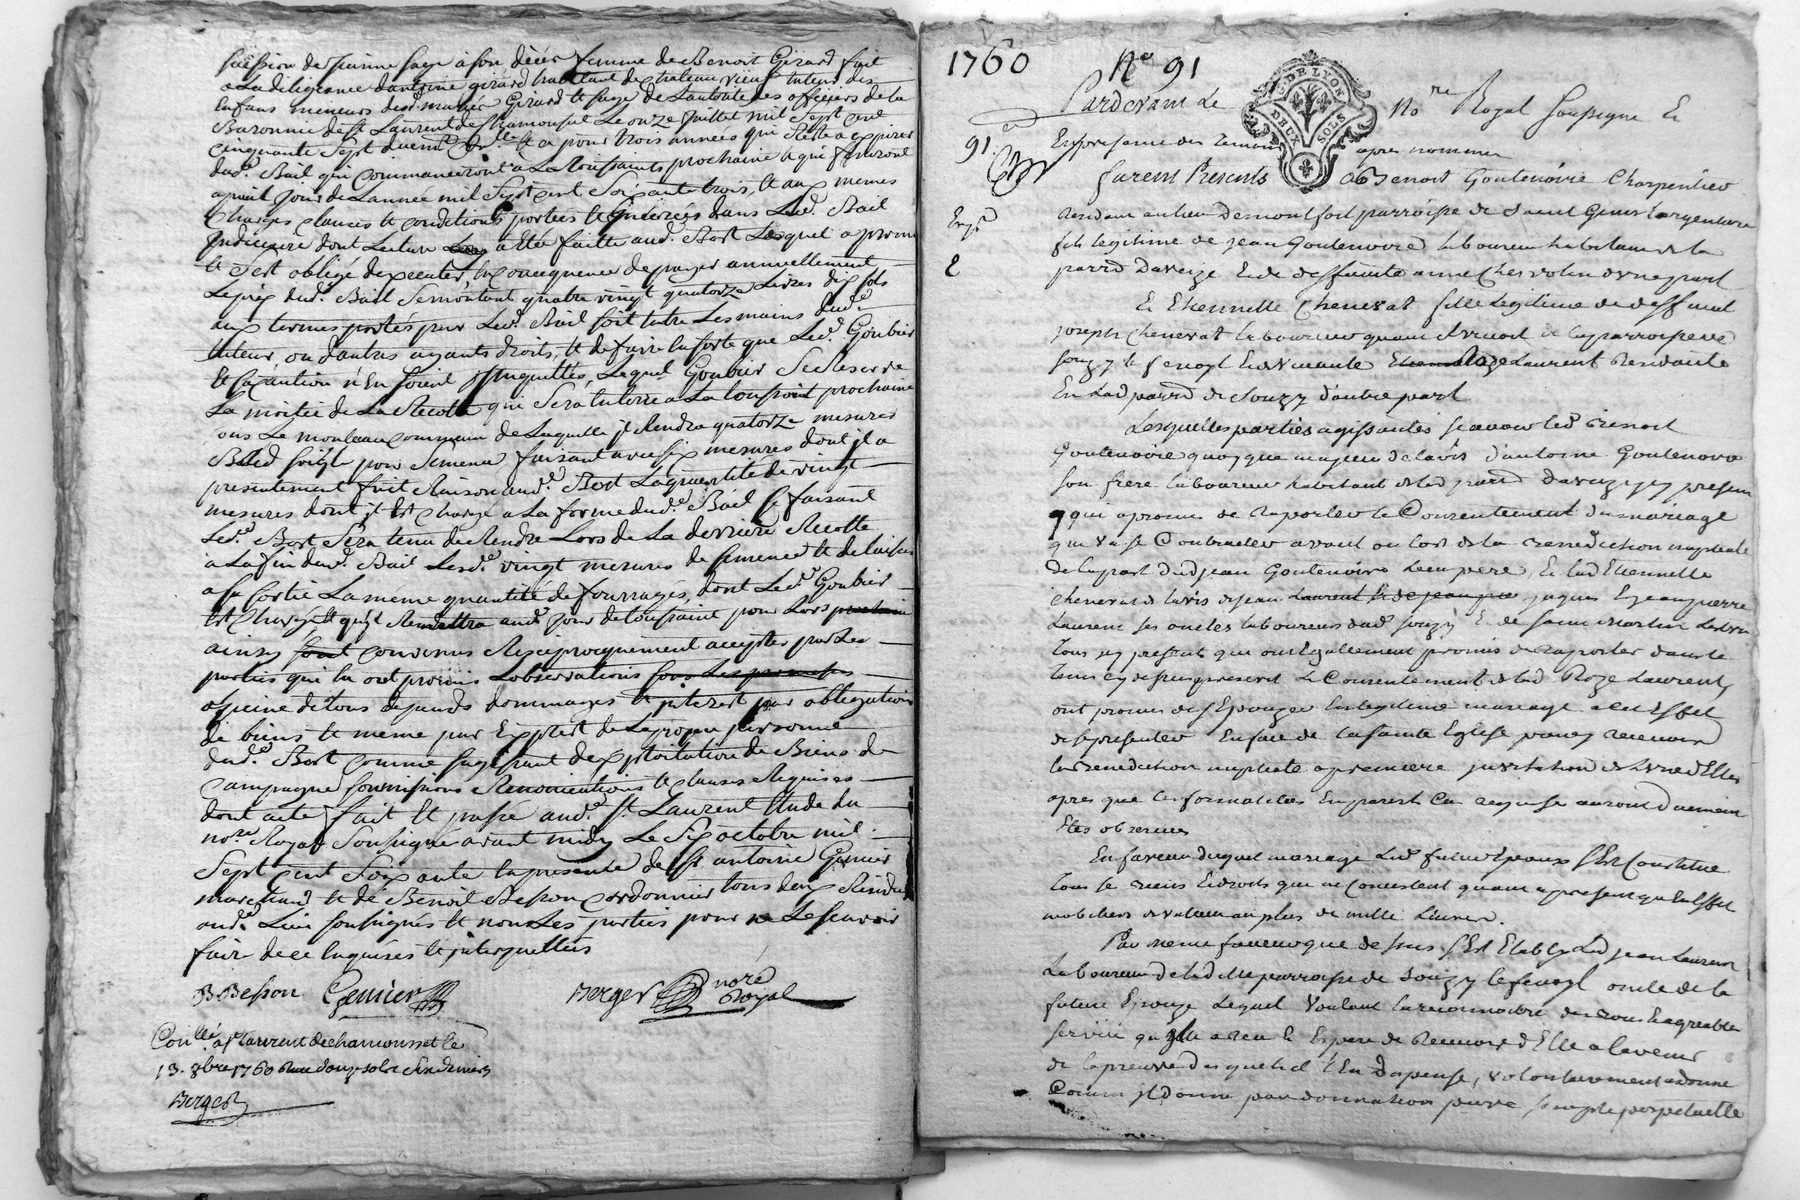 passion de jeanne sage à son décès femme de Benoit Girard fait
a La diligence d'antoine girard habitant de chateau vieux tuteur des
Enfans mineurs desd. mariés Girard et sage de L'autorité des officiers de la
Baronnie de St Laurent de Chamousset Le onze juillet mil Sept cent
cinquante Sept et ce pour trois années qui Reste a expirer
dud. Bail qui commanceront a La toussaints prochaine et qui finiront
a pareil jour de L'année mil Sept cent Soixante trois, et aux memes
Charges clauses et conditions portées et inserées dans Led. Bail
judiciaire dont Lecture a été faitte aud. Bost Lequel a promis
et s'est obligé d'executer, en consequence de payer annuellement
Le prix dud. Bail Se montant quatre vingt quatorze Livres dix sols
aux termes portés par Led. Bail soit entre Les mains dud.
tuteur ou d'autres ayants droits, et de faire en sorte que Led. Goubier
et Caution n'En soient inquiettés, Lequel Goubier Se Reserve
La moitié de La Recolte qui Sera a La toussaint prochaine
de Laquelle il Rendra quatorze mesures
Bled seigle pour Semence faisant avec six mesures dont il a
presentement fait Raison aud. Bost La quantité de vingt
mesures dont il Est Chargé a La forme dud. Bail Ce faisant
Led. Bost Sera tenu de Rendre Lors de La derniere Recolte
à La fin dud. Bail Lesd. vingt mesures de semence et de laisser
a sa sortie La meme quantité de fourrages, dont Led. Goubier
Est Chargé et qu'il Remettra aud. jour de toussaint pour Lors
ainsy convenu Reciproquement accepté par Les
parties qui En ont promis L'observations
a peine de tous depends dommages et interest par obligations
de biens et meme par Exprest de La propre personne
dud. Bost comme s'agissant d'exploitation de Biens de
Campagne soumissions Renonciations et clauses Requises
dont acte fait et passé aud. St Laurent Etude du
nore Royal Soussigné avant midy Le Six octobre mil
Sept cent Soixante En presence de Sr antoine Gemier
marchand et de Benoit Besson cordonnier tous deux Residants
aud. Lieu soussignés et non Les parties pour ne Le scavoir
faire de ce Enquises et interpellées
B Besson Gemier Berger nore Royal
Conllé à St Laurent de chamousset le
13. 8bre 1760 Reçu douze sols six deniers
Berger
1760 No 91
DE LYON
DEUX SOLS
Pardevant Le Nore Royal soussigné Et
91.e
En presence des Temoins apres nommés
furent Presents Benoit Goutenoire Charpentier
Residant au lieu de montfort parroisse de Saint Genis L'argentiere
fils legitime de jean Goutenoire laboureur habitant de la
parrd d'aveize Et de deffunte anne Chervolin d'une part
Et Etiennette Chenevat fille Legitime de deffunt
joseph Chenevat laboureur quand vivoit de la parroisse de
Souzy le fenoyl Et de vivante Roze Laurent Residante
En Lad parrd de Souzy d'autre part
Lesquelles parties agissantes scavoir led. Benoit
Goutenoire quoyque majeur de l'avis d'antoine Goutenoire
son frere laboureur habitant de lad parrd d'aveize cy present
qui a promis de Raporter le Consentement du mariage
qui va se Contracter avant ou lors de la Benediction nuptiale
de la part dud jean Goutenoire leur pere, Et lad Etiennette
Chenevat de l'avis de jean jaques Et jean pierre
Laurent ses oncles laboureurs dud. Souzy Et de Saint martin
Tous icy presents qui ont Egallement promis de Raporter dans le
Tems cy dessus prescrit Le Consentement de lad Roze Laurent
ont promis de s'Epouzer En legitime mariage a cet Effet
de se presenter En face de la sainte Eglise pour y recevoir
la Benediction nuptiale a premiere jnvitation de L'une d'Elles
apres que les formalités En pareil Cas requise auront duement
Etés observées
En faveur duquel mariage Led futur Epoux s'Est Constitué
Tous ses Biens Et droits qui ne Consistent quant a present qu'En Effets
mobiliers de valleur au plus de mille Livres.
Par meme faveur que dessus s'Est Etably Led jean Laurent
Laboureur de lad parroisse de Souzy le fenoyl oncle de la
future Epouze Lequel Voulant Reconnoitre des Bons Et agreables
services qu'elle a reçu Et Espere de Recevoir d'Elle a l'avenir
de la preuve desquels il l'En dispense, volontairement a donné
Comme jl Donne par donnation pure simple perpetuelle